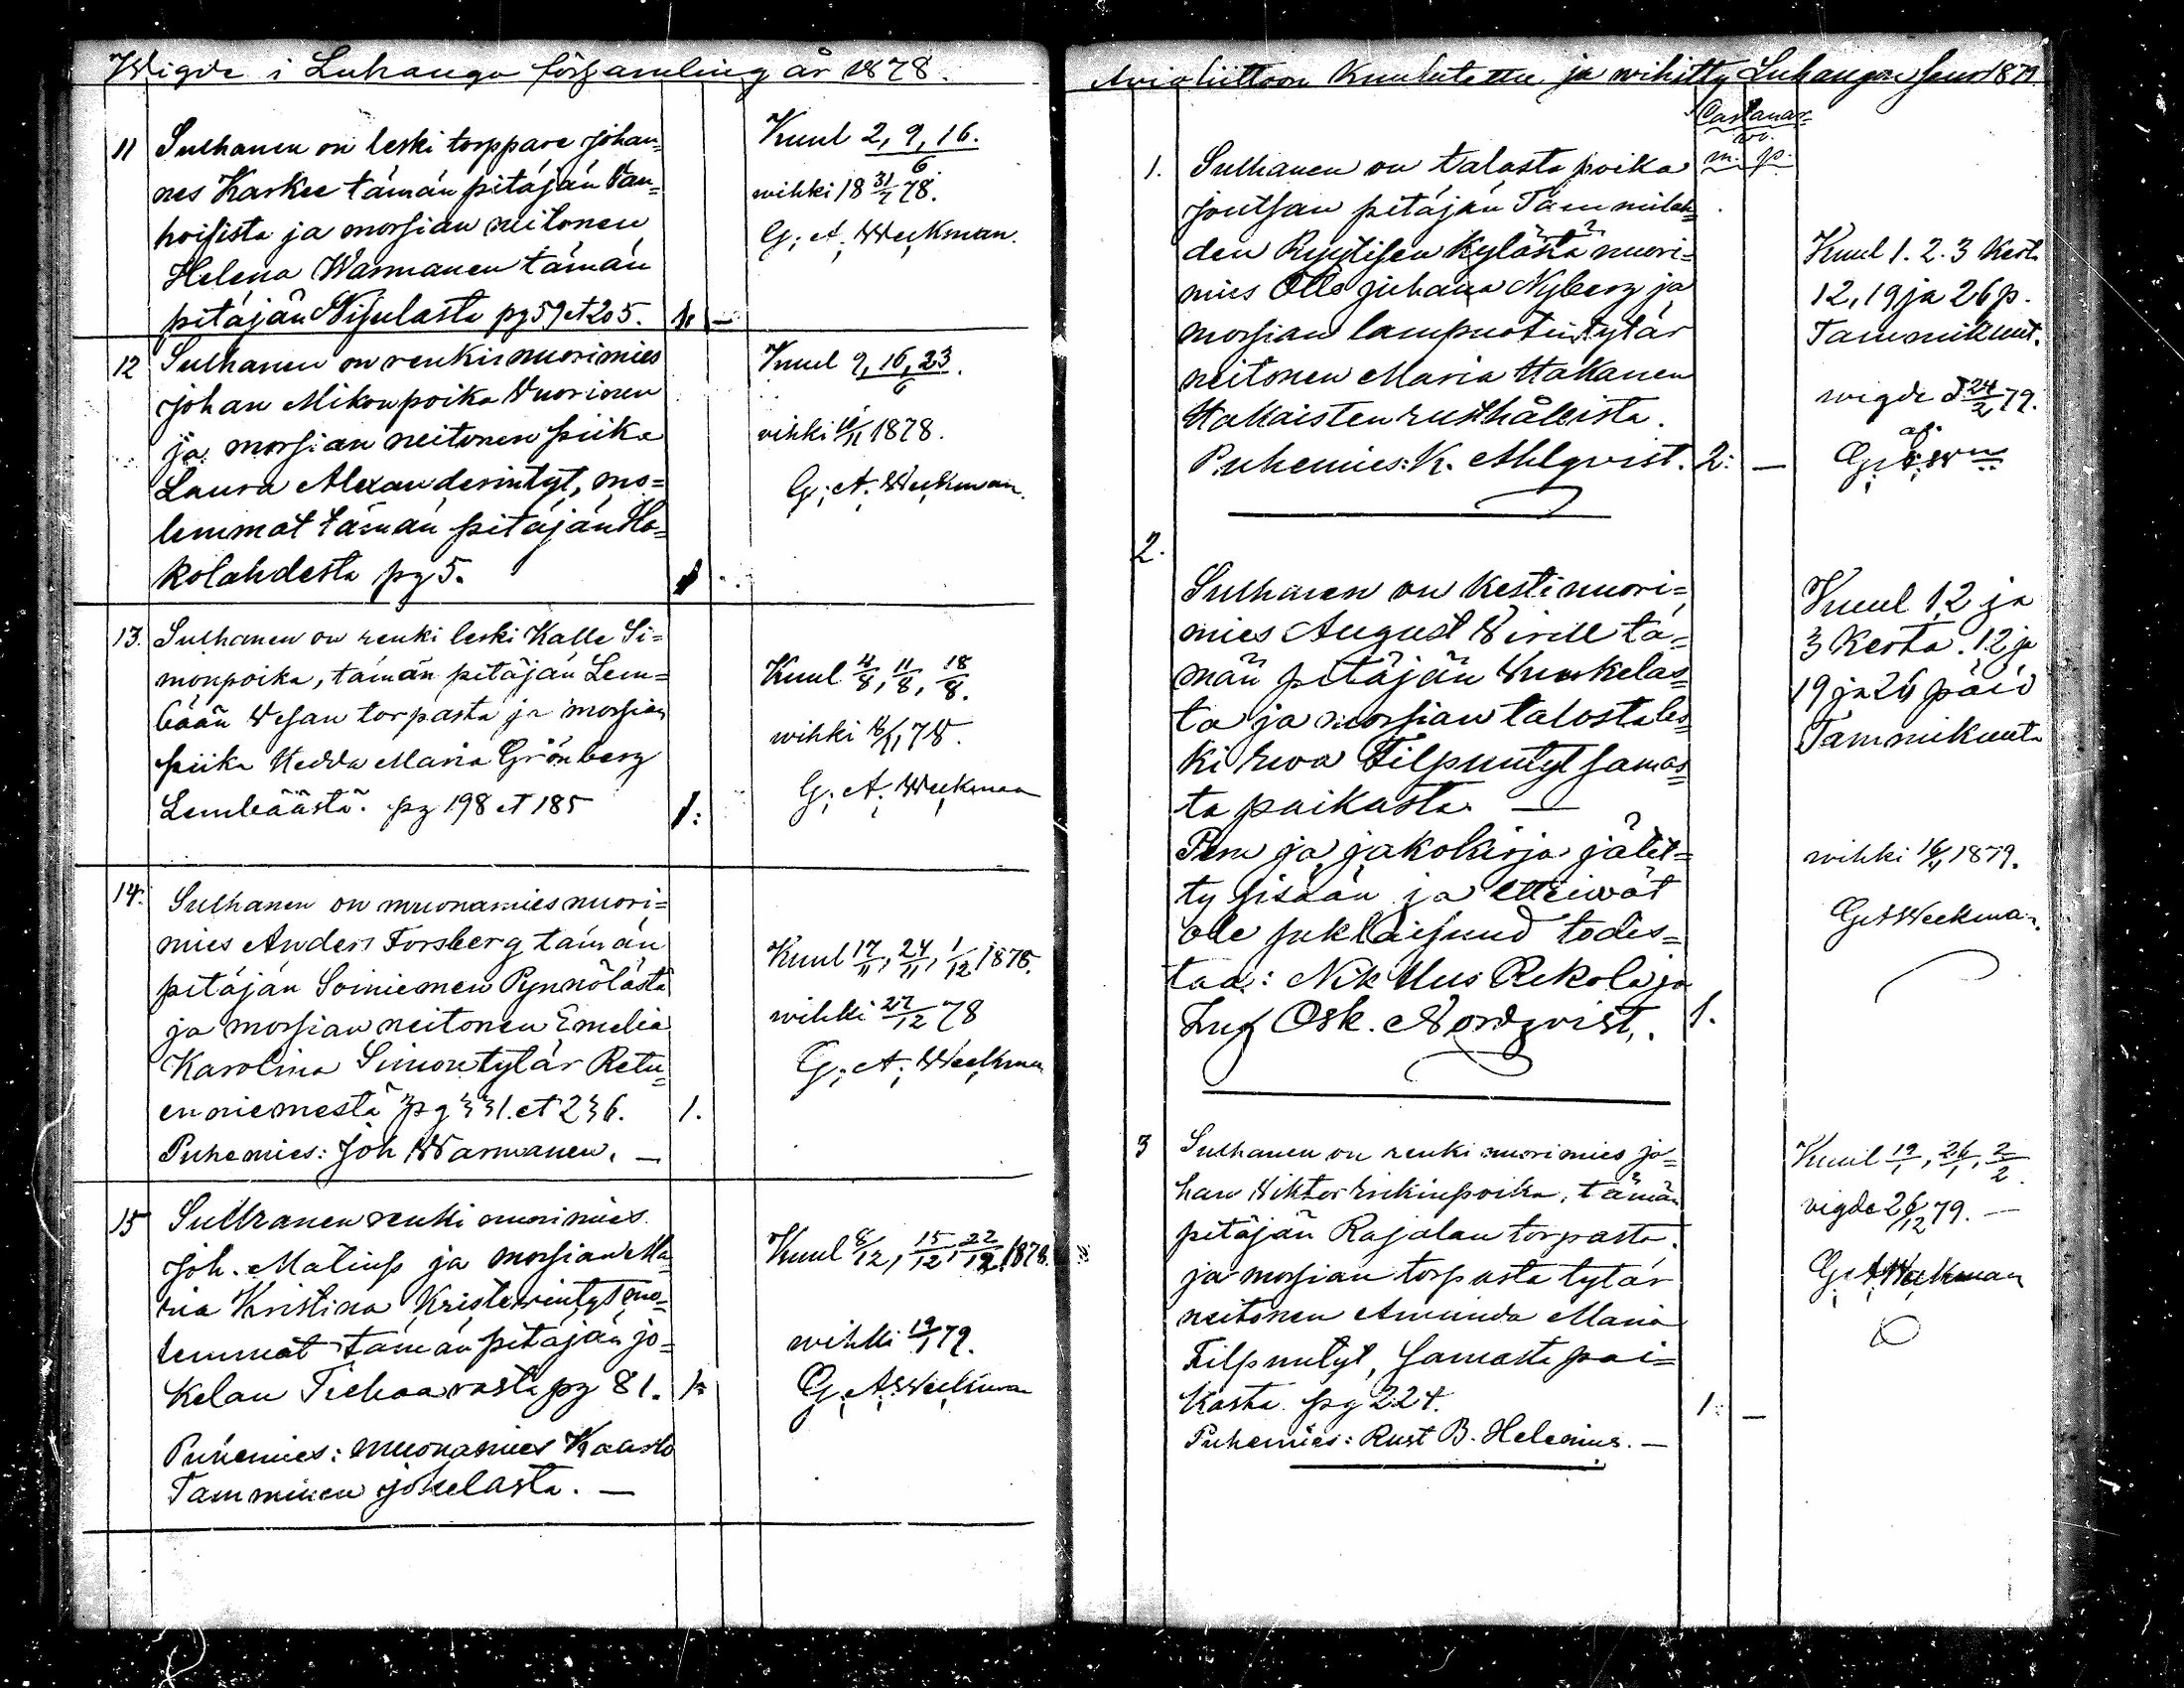 Wigde i Luhango församling år 1878.
11 Sulhanen on leski torppare Johan=
nes Karkee tämän pitäjän Van=
hoisista ja morsian neitonen
Helena Warmanen tämän
pitäjän Nisulasta pg 59 et 205. 1. —
Kuul 2, 9, 16.
6
wihki 18 31/7 78.
G. A. Weckman.
12 Sulhanen on renki nuorimies
Johan Mikonpoika Vuorinen
ja morsian neitonen piika
Laura Alexanderintyt, mo=
lemmat tämän pitäjän Ho=
kolahdesta pg 5.
Kuul 9, 16, 23.
6
wihki 10/11 1878.
G. A. Weckman.
13. Sulhanen on renki leski Kalle Si=
monpoika, tämän pitäjän Lem=
bään Wesan torpasta ja morsian
piika Hedda Maria Grönberg
Lembäästä. pg 198 et 185 1:
Kuul 4/8, 11/8, 18/8.
wihki 78.
G. A. Weckman
14. Sulhanen on muonamies nuori=
mies Anders Forsberg tämän
pitäjän Soiniemen Pynnölästä
ja morsian neitonen Emelia
Karolina Simontytär Retu=
enniemestä pg 331. et 236. 1.
Puhemies: Joh Warmanen. —
Kuul 17/11, 24/11, 1/12 1878.
wihki 27/12 78
G. A. Weckman
15 Sulhanen renki nuorimies
Joh. Matinp ja morsian Ma=
ria Kristina Kristerintyt mo=
lemmat tämän pitäjän Jo=
kelan pg 81. 1:
Puhemies: muonamies Kaarlo
Tamminen Jokelasta. —
Kuul 8/12, 15/12, 22/12 1878.
wihki 19/1 79.
G. A. Weckman
Avioliittoon Kuulutettu ja wihitty Luhangon seur 1879
m. p.
1. Sulhanen on talosta poika
Joutsan pitäjän Tammilah=
den Ryytisen Kylästä nuori=
mies Olli Juhana Nyberg ja
morsian lampuotintytär
neitonen Maria Hakanen
Hakaisten rusthållista.
Puhemies: K. Ahlqvist. 2: —
Kuul 1. 2. 3 Kert.
12, 19 ja 26 p.
Tammikuut.
wigde d 24/2 79.
af
2.
Sulhanen on Kesti nuori=
mies August Wirell tä=
män pitäjän
ta ja morsian talosta les=
ki Eeva Filpuntyt samas=
ta paikasta. —
Peru ja jakokirja jätet=
ty sisään ja etteiwät
ole sukulaisuud todis=
taa: Nik Uus Rekola ja
Osk. Nordqvist. 1.
Kuul 1, 2 ja
3 Kerta. 12 ja
19 ja 26 päiv
Tammikuuta
wihki 1879.
G A Weckman.
3 Sulhanen on renki nuorimies Jo=
han Viktor Erikinpoika, tämän
pitäjän Rajalan torpasta
ja morsian torpasta tytär
neitonen Amanda Maria
Filpuntyt, samasta pai=
kasta. pg 224. 1: —
Puhemies: Rust B. Helenius. —
Kuul 19/1, 26/1, 2/2.
vigde 26/12 79. —
G. A. Weckman